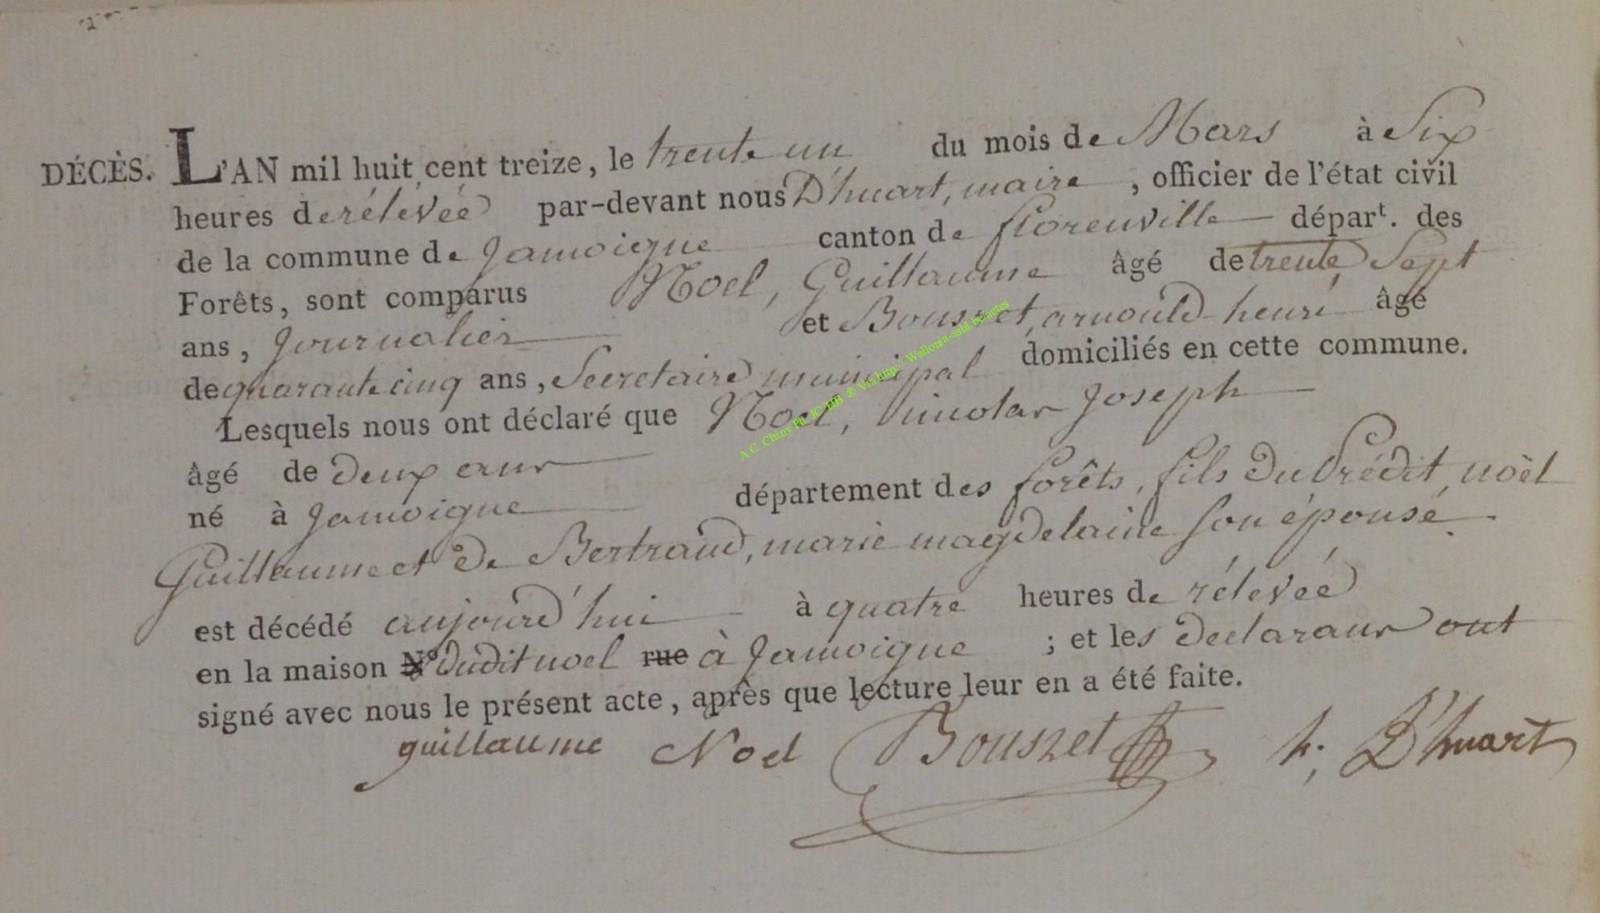 DÉCÈS. L'AN mil huit cent treize, le trente un du mois de Mars à Six
heures de rélévée par-devant nous D'huart, maire, officier de l'état civil
de la commune de Jamoigne canton de florenville départ. des
Forêts, sont comparus Noel, Guillaume âgé de trente Sept
ans, Journalier et Bouszet, arnould-henri âgé
de quarante cinq ans, Secretaire municipal domiciliés en cette commune.
Lesquels nous ont déclaré que Noel, nicolas Joseph
âgé de deux ans
né à Jamoigne département des forêts, fils du Prédit, noël
Guillaume et de Bertrand, marie magdelaine son épouse.
est décédé aujourd'hui à quatre heures de rélevée
en la maison N° dudit noel rue à Jamoigne ; et les declarans ont
signé avec nous le présent acte, après que lecture leur en a été faite.
guillaume Noel Bouszet h. D'huart